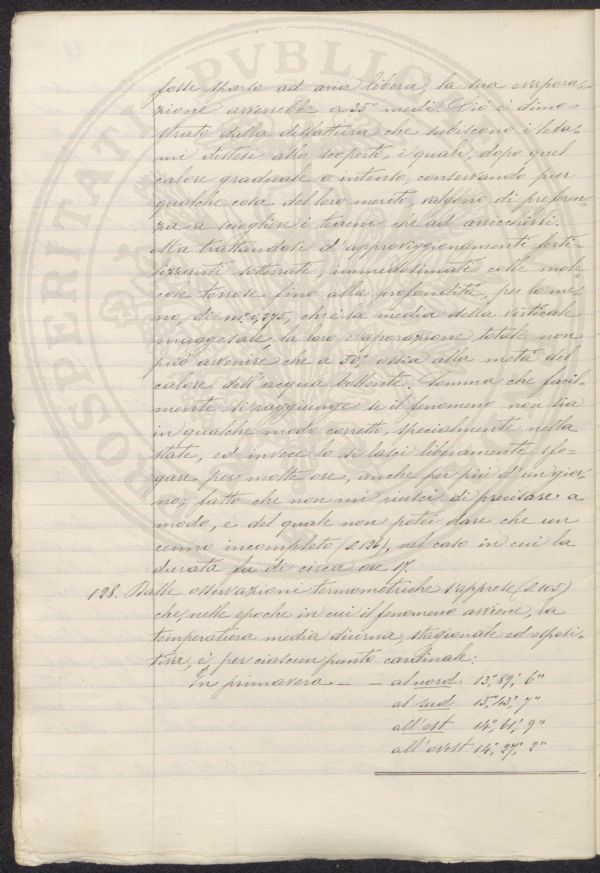 fosse sparso ad aria libera, la sua evapora-
zione avverrebbe a 35° medi. Ciò è dimo-
strato dalla disfattura che subiscono i leta-
mi distesi allo scoperto, i quali, dopo quel
calore graduale o intenso, conservando pur
qualche cosa del loro merito, valgono di preferen-
za a sciogliere i terreni che ad arricchirli.
Ma trattandosi d'approviggionamenti ferti-
lizzanti sotterrati, immedesimati colle mole-
cole terrose fino alla profondità, per lo me-
no, di m.º 0,275, ch'è la media della verticale
la loro evaporazione totale non
può avvenire che a 50°, ossia alla metà del
calore dell'acqua bollente. Temma che facil-
mente si raggiunge se il fenomeno non sia
in qualche modo corretto, specialmente nella
state, ed invece lo si lasci liberamente sfo-
gare per molte ore, anche per più d'un gior-
no; fatto che non mi riuscì di precisare a
modo, e del quale non potei dare che un
cenno incompleto (§. 126), nel caso in cui la
durata fu di circa ore 17.
128. Dalle osservazioni termometriche s'apprese (§. 105)
che, nelle epoche in cui il fenomeno avviene, la
temperatura media diurna, stagionale ed esposi-
tiva, è, per ciascun punto cardinale:
In primavera — - al nord 13°, 89', 6"
al sud 15°, 43', 7"
all'est 14°, 61', 9"
all'ovest 14°, 27', 2"
PVBLICAE
PROSPERITATI